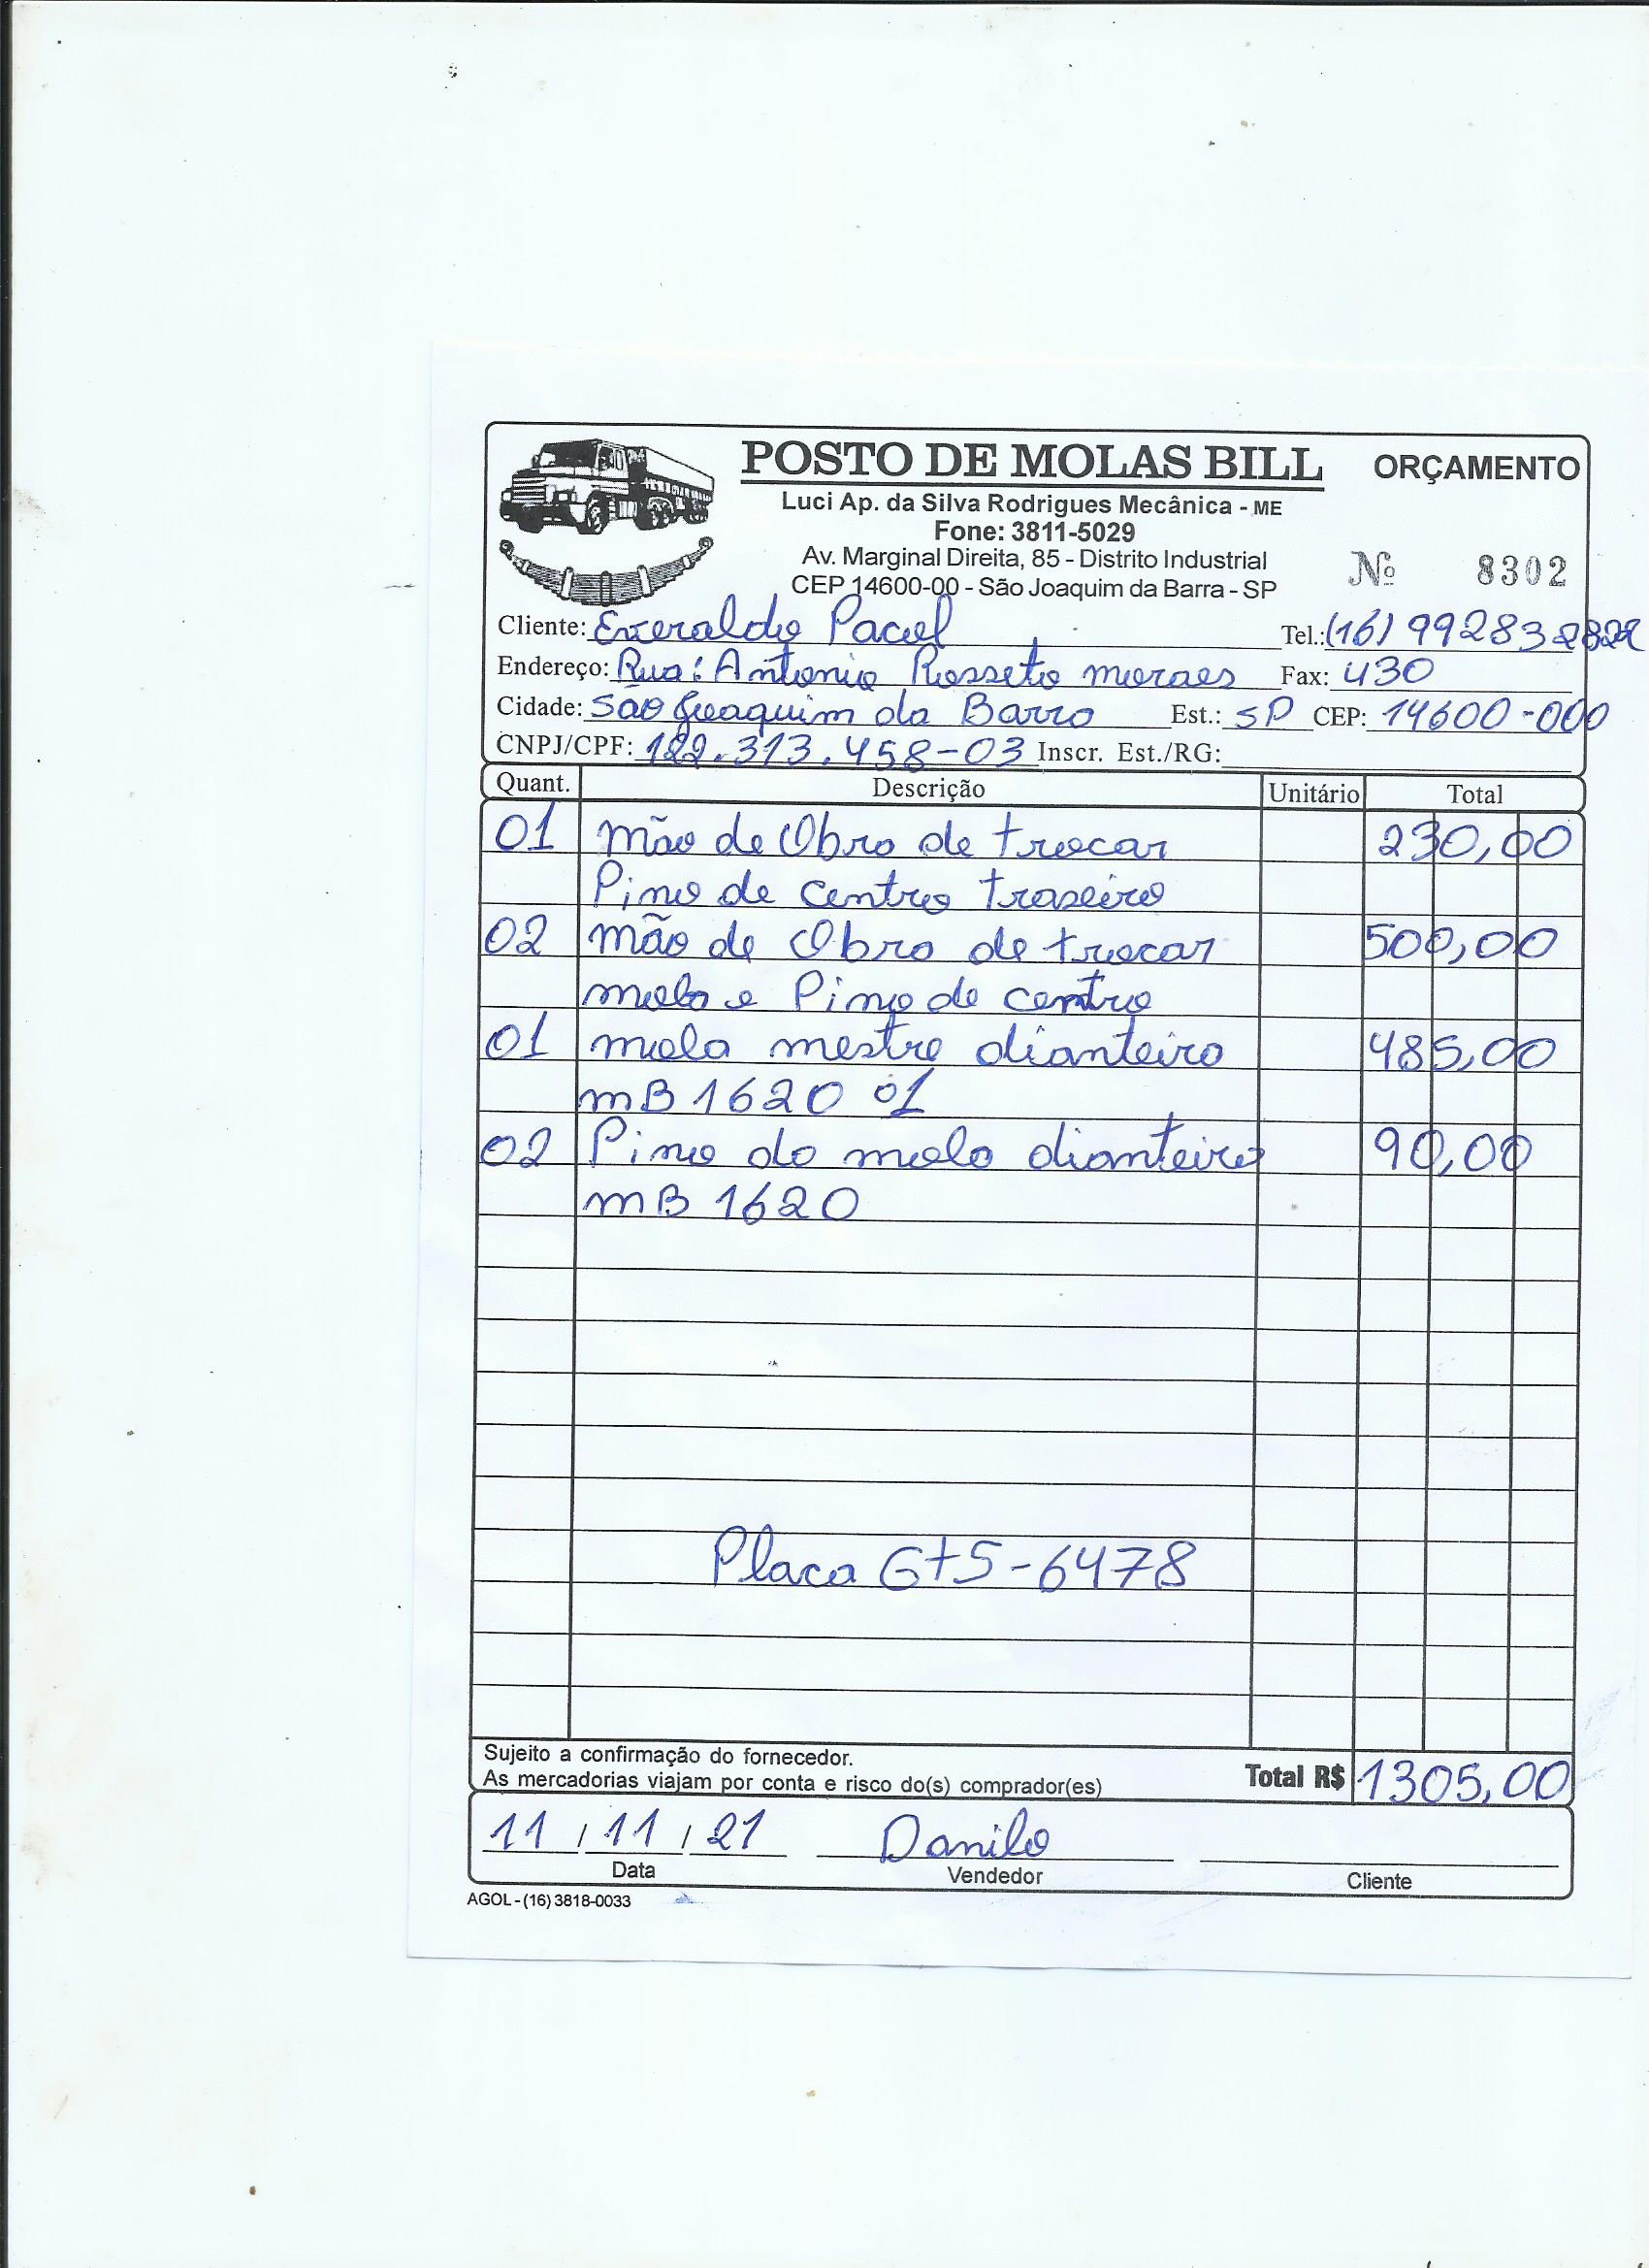 POSTO DE MOLAS BILL ORÇAMENTO
Luci Ap. da Silva Rodrigues Mecânica - ME
Fone: 3811-5029
Av. Marginal Direita, 85 - Distrito Industrial
Nº 8302
CEP 14600-00 - São Joaquim da Barra - SP
Cliente: Tel.: (16)
Endereço: Rua: Antonio Rosseto moraes Fax: 430
Cidade: São Joaquim da Barra Est.: SP CEP: 14600-000
CNPJ/CPF: 122.313.458-03 Inscr. Est./RG:
Quant. Descrição Unitário Total
01 mão de Obra de trocar 230,00
Pino de centro traseiro
02 mão de Obra de trocar 500,00
mola e Pino de centro
01 mola mestre dianteiro 485,00
mB 1620 01
02 Pino da mola dianteiro 90,00
mB 1620
Placa GTS-6478
Sujeito a confirmação do fornecedor.
As mercadorias viajam por conta e risco do(s) comprador(es) Total R$ 1305,00
11 / 11 / 21 Danilo
Data Vendedor Cliente
AGOL - (16) 3818-0033